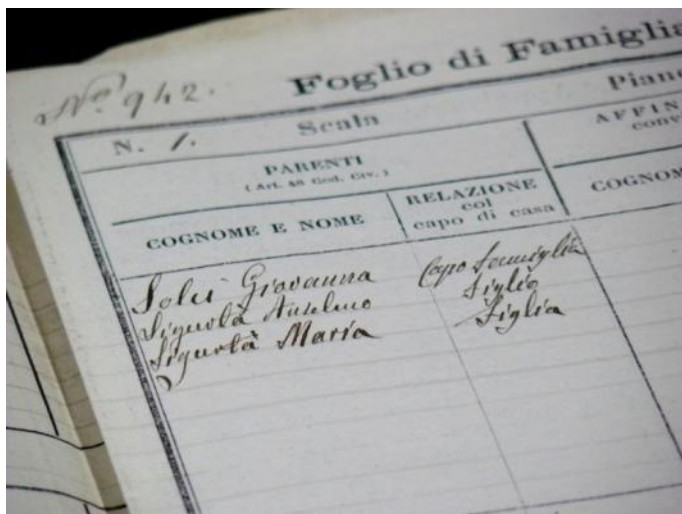 No. 942.
Foglio di Famiglia
N. 1. Scala Piano
PARENTI
(Art. 48 Cod. Civ.)
AFFIN
conv
COGNOME E NOME
RELAZIONE
col
capo di casa
COGNOM
Giovanna Capo famiglia
Sigurtà Anselmo Figlio
Sigurtà Maria Figlia